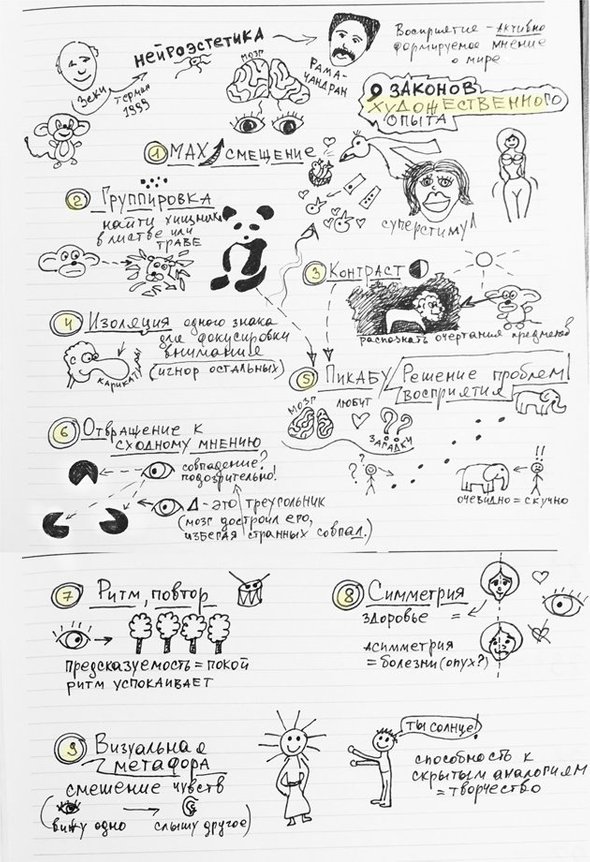 Нейроэстетика
Зеки
термин
1999
мозг
Рама-
чандран
Восприятие - активно
формируемое мнение
о мире
9 законов
художественного
опыта
1 MAX смещение
суперстимул
2 Группировка
найти хищника
в листве или
траве
3 Контраст
распознать очертания предметов
4 Изоляция одного знака
для фокусировки
внимания
(игнор остальных)
карикатура
5 Пикабу/Решение проблем
восприятия
мозг
любит
??
загадки
? ?
!!
очевидно = скучно
6 Отвращение к
сходному мнению
совпадение?
подозрительно!
Δ - это треугольник
(мозг достроил его,
избегая странных совпад.)
7 Ритм, повтор
предсказуемость = покой
ритм успокаивает
8 Симметрия
здоровье =
асимметрия
= болезни (опух?)
9 Визуальная
метафора
смешение чувств
(вижу одно → слышу другое)
ты солнце!
способность к
скрытым аналогиям
= творчество